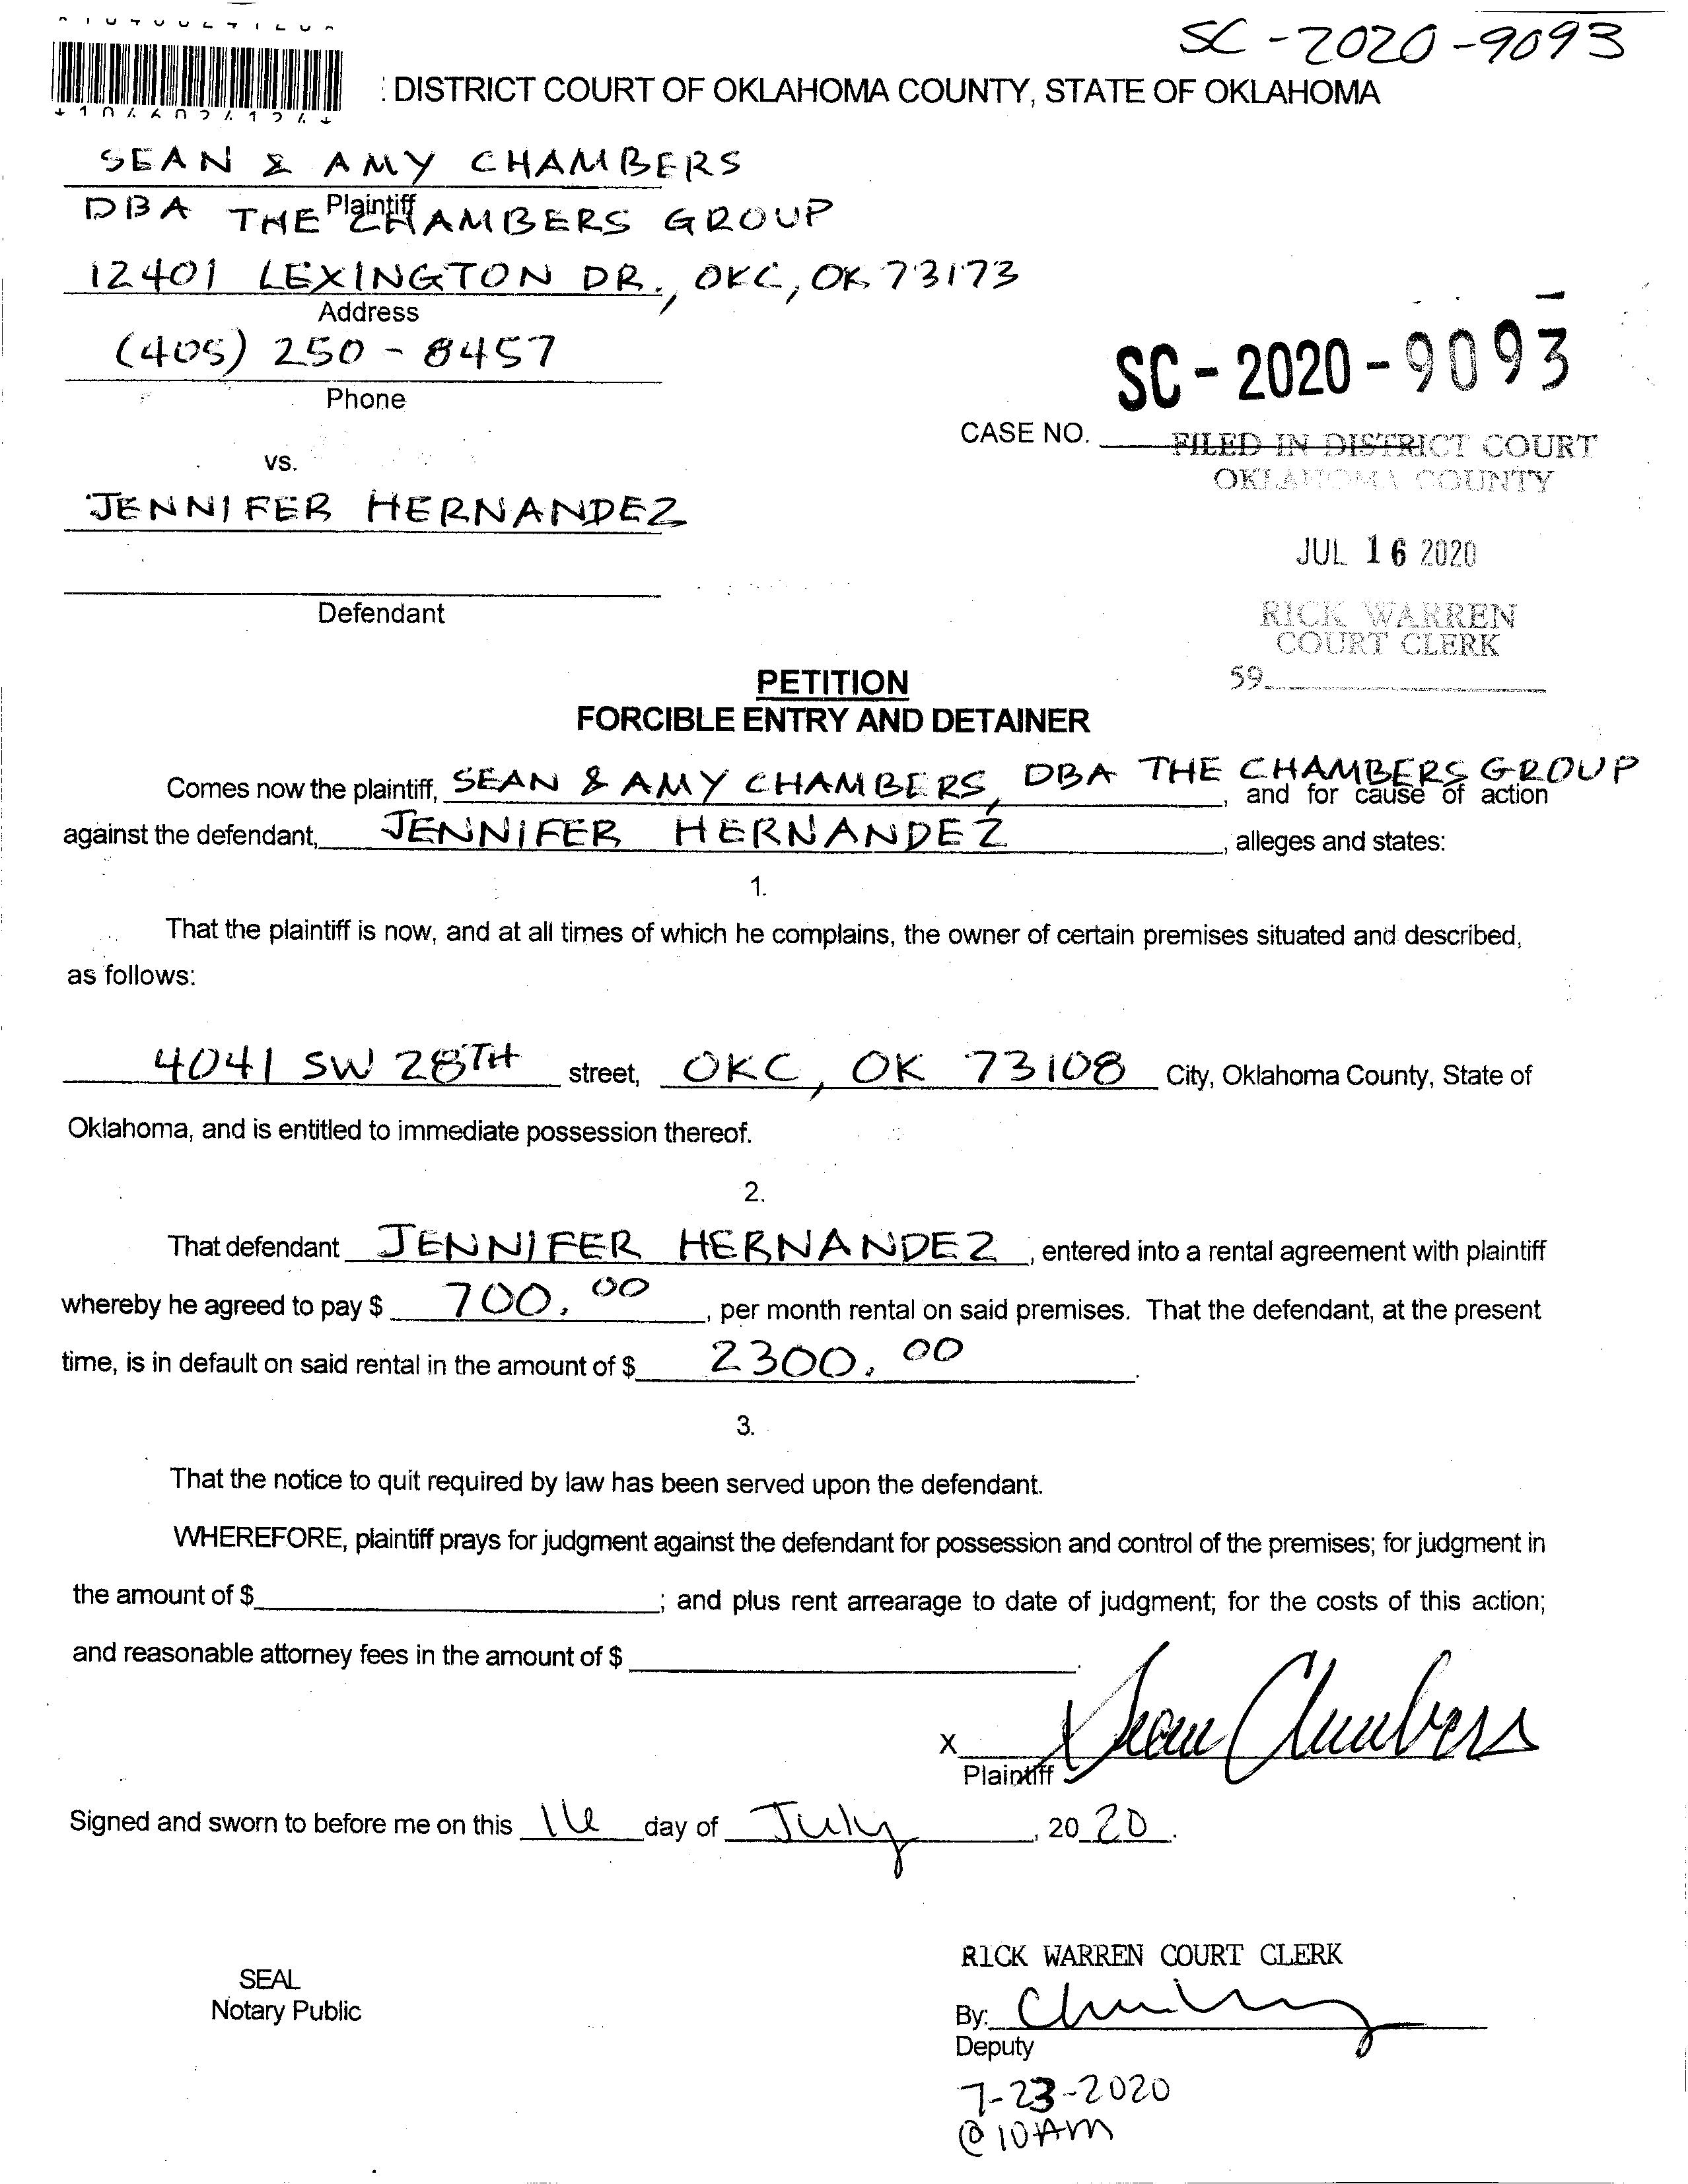 SC-2020-9093
DISTRICT COURT OF OKLAHOMA COUNTY, STATE OF OKLAHOMA
SEAN & AMY CHAMBERS
Plaintiff
DBA THE CHAMBERS GROUP
12401 LEXINGTON DR., OKC, OK 73173
Address
(405) 250-8457
Phone
SC-2020-9093
CASE NO.
FILED IN DISTRICT COURT
OKLAHOMA COUNTY
vs.
JENNIFER HERNANDEZ
JUL 16 2020
Defendant
RICK WARREN
COURT CLERK
59
PETITION
FORCIBLE ENTRY AND DETAINER
Comes now the plaintiff, SEAN & AMY CHAMBERS, DBA THE CHAMBERS GROUP, and for cause of action
against the defendant, JENNIFER HERNANDEZ, alleges and states:
1.
That the plaintiff is now, and at all times of which he complains, the owner of certain premises situated and described,
as follows:
4041 SW 28TH street, OKC, OK 73108 City, Oklahoma County, State of
Oklahoma, and is entitled to immediate possession thereof.
2.
That defendant JENNIFER HERNANDEZ, entered into a rental agreement with plaintiff
whereby he agreed to pay $ 700.00, per month rental on said premises. That the defendant, at the present
time, is in default on said rental in the amount of $ 2300.00.
3.
That the notice to quit required by law has been served upon the defendant.
WHEREFORE, plaintiff prays for judgment against the defendant for possession and control of the premises; for judgment in
the amount of $ ; and plus rent arrearage to date of judgment; for the costs of this action;
and reasonable attorney fees in the amount of $ .
X Sean Chambers
Plaintiff
Signed and sworn to before me on this 16 day of July, 2020.
RICK WARREN COURT CLERK
SEAL
Notary Public
By:
Deputy
7-23-2020
@ 10AM